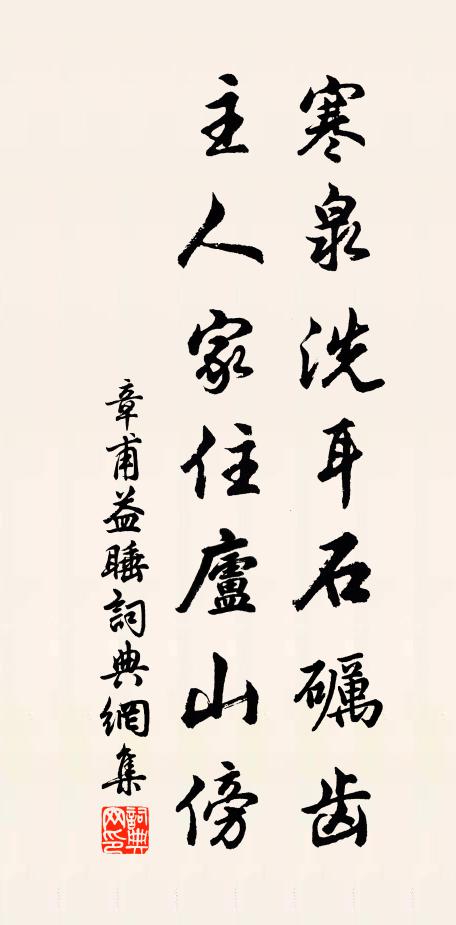 寒泉洗耳石礪齿
主人家住廬山傍
章甫益睡詞典網集
詞典网印